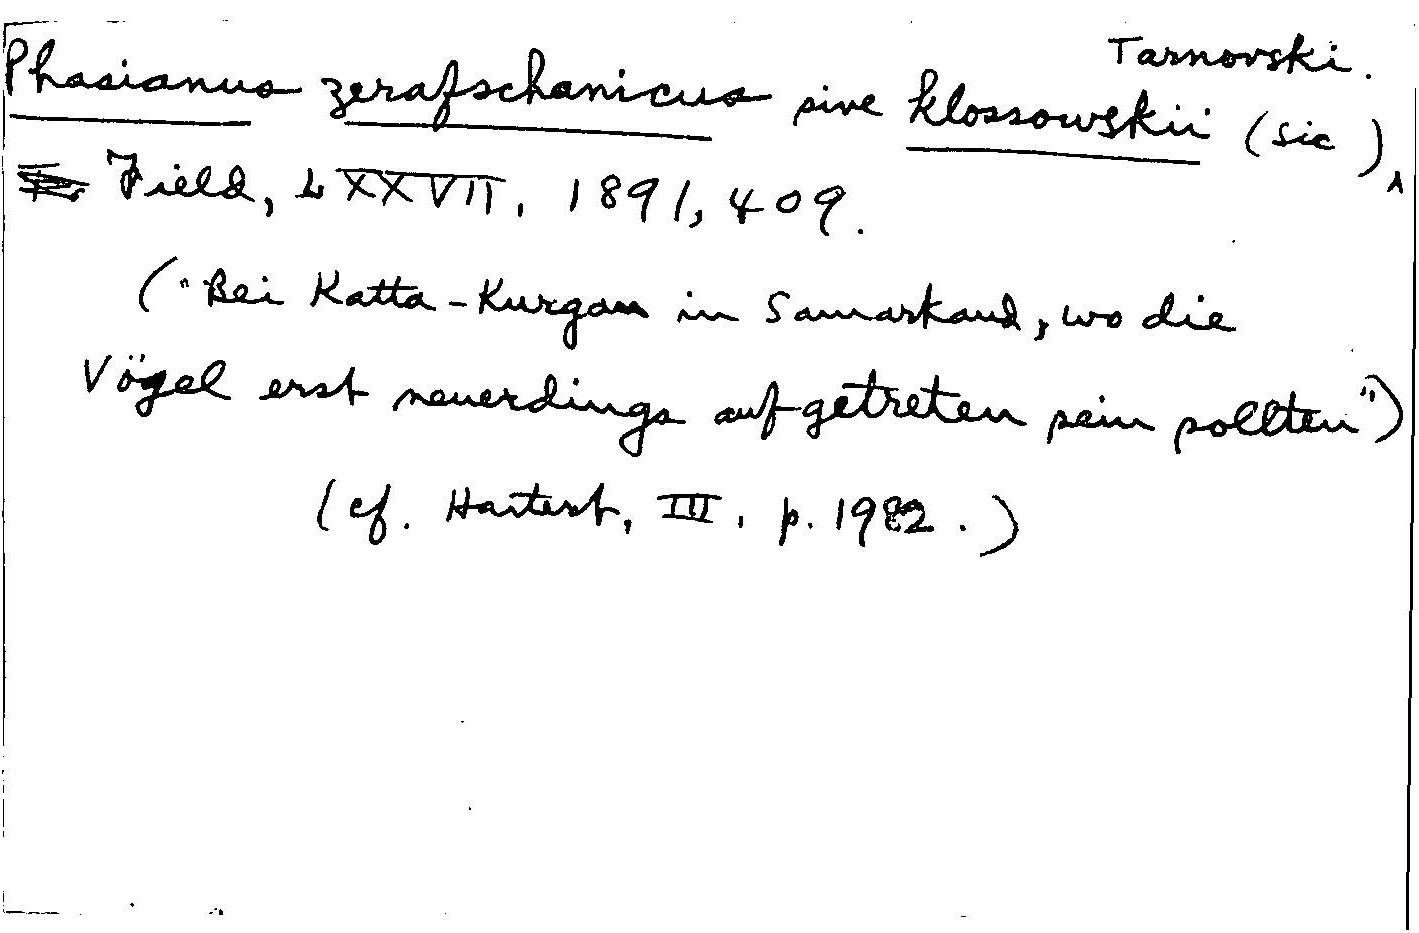 Tarnovski.
Phasianus zerafschanicus sive klossowskii (sic),
Field, LXXVII, 1891, 409.
("Bei Katta-Kurgan in Samarkand, wo die
Vögel erst neuerdings aufgetreten sein sollten")
(cf. Hartert, III, p. 1982.)